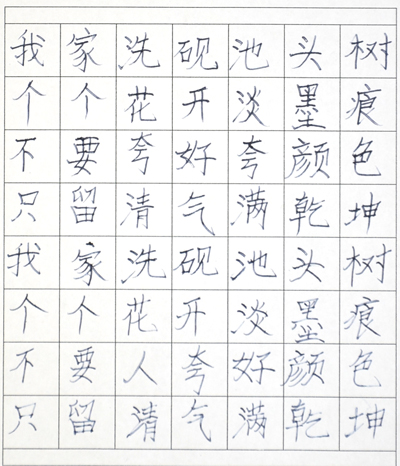 我家洗砚池头树
个个花开淡墨痕
不要夸好夸颜色
只留清气满乾坤
我家洗砚池头树
个个花开淡墨痕
不要人夸好颜色
只留清气满乾坤